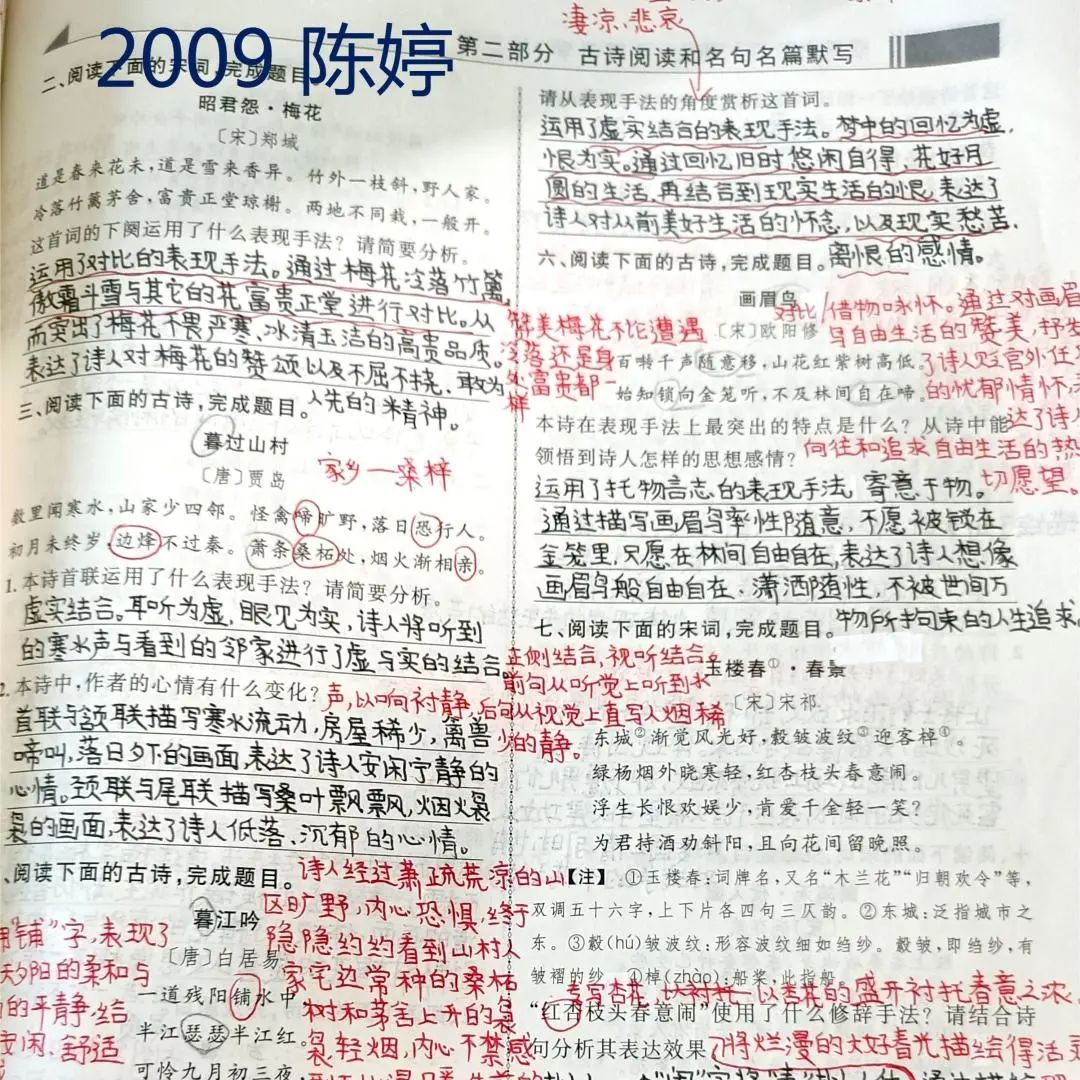 2009 陈婷
凄凉、悲哀
第二部分 古诗阅读和名句名篇默写
二、阅读下面的宋词,完成题目
昭君怨·梅花
〔宋〕郑域
道是春来花未,道是雪来香异。竹外一枝斜,野人家。
冷落竹篱茅舍,富贵正堂琼榭。两地不同栽,一般开。
这首词的下阕运用了什么表现手法?请简要分析。
运用了对比的表现手法。通过梅花冷落竹篱,
傲霜斗雪与其它的花富贵正堂进行对比。从
而突出了梅花不畏严寒、冰清玉洁的高贵品质。
表达了诗人对梅花的赞颂以及不屈不挠、敢为
人先的精神。
赞美梅花不论遭遇
冷落还是身
处富贵都一
样
三、阅读下面的古诗,完成题目。
暮过山村
〔唐〕贾岛
家乡—桑梓
数里闻寒水,山家少四邻。怪禽啼旷野,落日恐行人。
初月未终岁,边烽不过秦。萧条桑柘处,烟火渐相亲。
1.本诗首联运用了什么表现手法?请简要分析。
虚实结合。耳听为虚,眼见为实,诗人将听到
的寒水声与看到的邻家进行了虚与实的结合。
2.本诗中,作者的心情有什么变化?
声,以响衬静,
首联与颔联描写寒水流动,房屋稀少,禽兽
啼叫,落日夕下的画面,表达了诗人安闲宁静的
心情。颈联与尾联描写桑叶飘飘,烟火袅
袅的画面,表达了诗人低落、沉郁的心情。
正侧结合,视听结合
前句从听觉上听到水
后句从视觉上直写人烟稀
少的静。
、阅读下面的古诗,完成题目。
诗人经过萧疏荒凉的山
区旷野,内心恐惧,终于
隐隐约约看到山村人
家宅边常种的桑柘
树和茅舍上升的袅
袅轻烟,内心不禁感
暮江吟
〔唐〕白居易
一道残阳铺水中,
半江瑟瑟半江红。
可怜九月初三夜,
用"铺"字,表现了
夕阳的柔和与
的平静,给
安闲、舒适
请从表现手法的角度赏析这首词。
运用了虚实结合的表现手法。梦中的回忆为虚,
恨为实。通过回忆旧时悠闲自得、花好月
圆的生活,再结合到现实生活的恨,表达了
诗人对从前美好生活的怀念,以及现实愁苦、
离恨的感情。
六、阅读下面的古诗,完成题目。
画眉鸟
〔宋〕欧阳修
百啭千声随意移,山花红紫树高低。
始知锁向金笼听,不及林间自在啼。
对比/借物咏怀。通过对画眉
鸟自由生活的赞美,抒发
了诗人贬官外任
的忧郁情怀
达了诗人
向往和追求自由生活的热
切愿望。
本诗在表现手法上最突出的特点是什么?从诗中能
领悟到诗人怎样的思想感情?
运用了托物言志的表现手法,寄意于物。
通过描写画眉鸟率性随意,不愿被锁在
金笼里,只愿在林间自由自在,表达了诗人想像
画眉鸟般自由自在、潇洒随性,不被世间万
物所拘束的人生追求。
七、阅读下面的宋词,完成题目。
玉楼春①·春景
〔宋〕宋祁
东城②渐觉风光好,縠皱波纹③迎客棹④。
绿杨烟外晓寒轻,红杏枝头春意闹。
浮生长恨欢娱少,肯爱千金轻一笑?
为君持酒劝斜阳,且向花间留晚照。
【注】 ①玉楼春:词牌名,又名"木兰花""归朝欢令"等,
双调五十六字,上下片各四句三仄韵。②东城:泛指城市之
东。③縠(hú)皱波纹:形容波纹细如绉纱。縠皱,即绉纱,有
皱褶的纱。④棹(zhào):船桨,此指船。
以杏花的盛开衬托春意之浓
"红杏枝头春意闹"使用了什么修辞手法?请结合诗
句分析其表达效果
了将烂漫的大好春光描绘得活